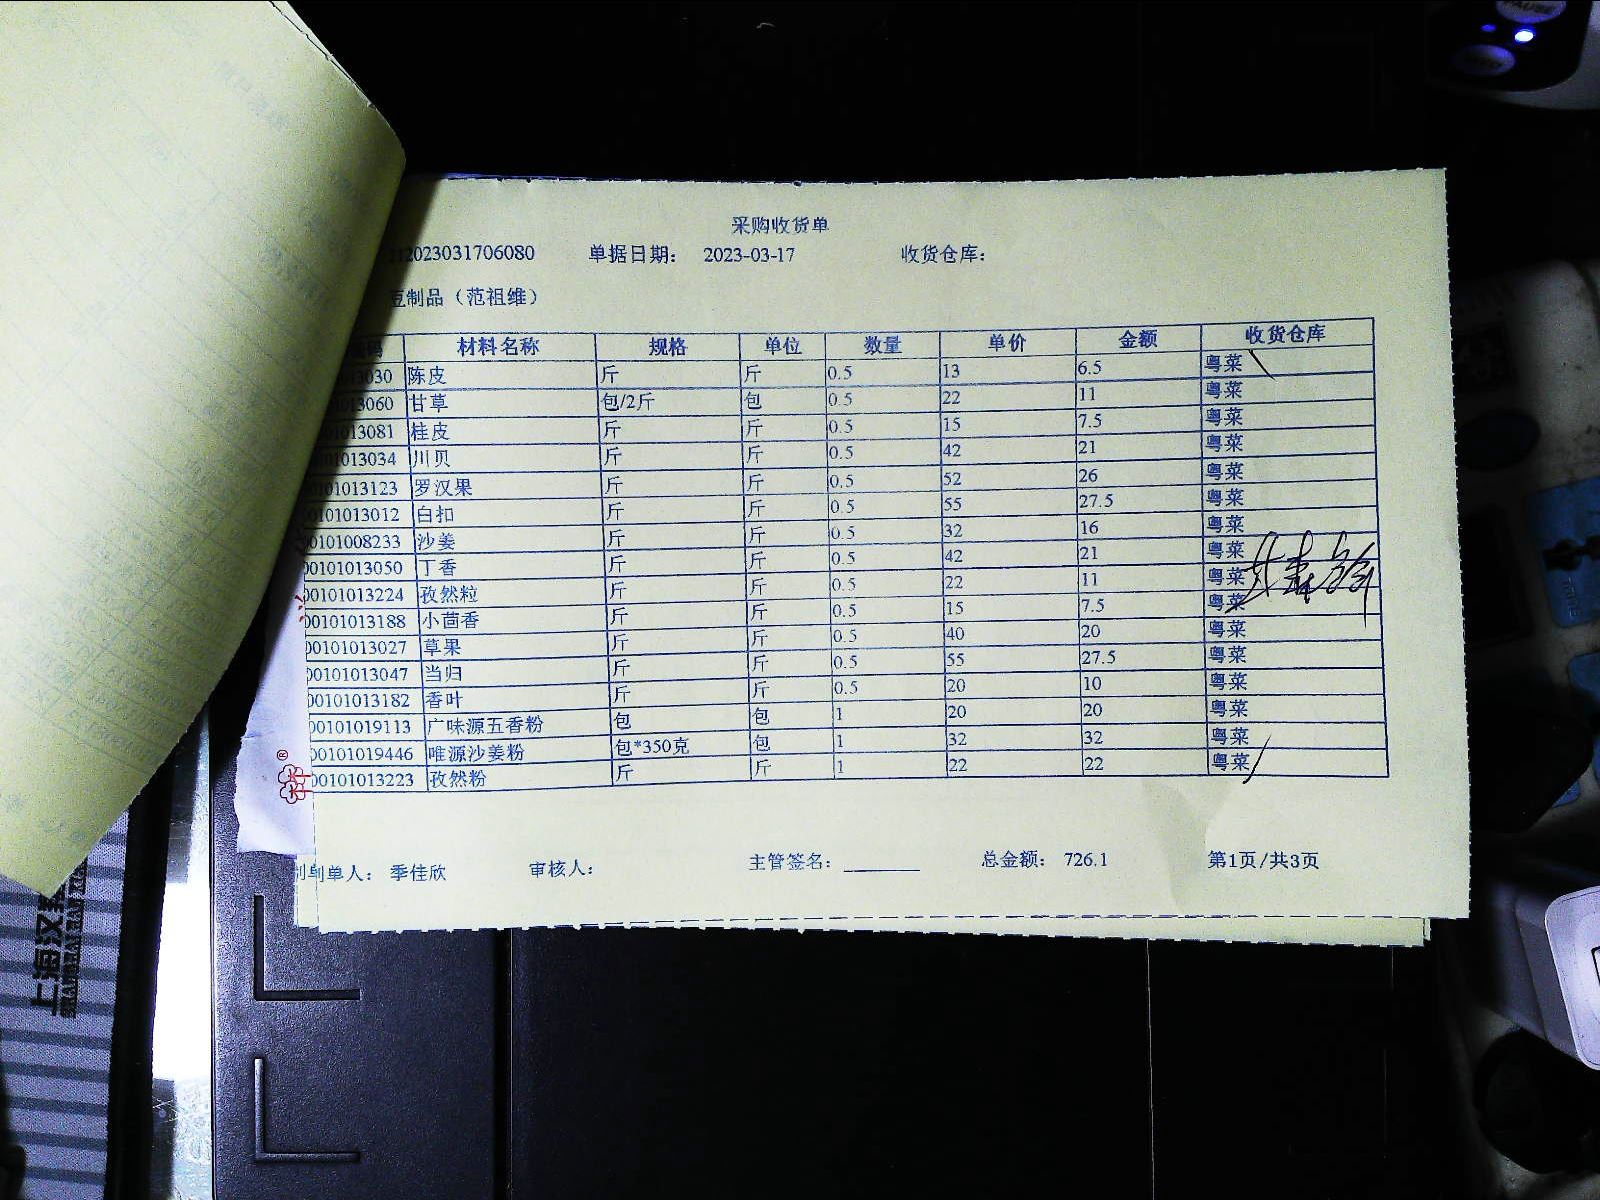 采购收货单
12023031706080 单据日期： 2023-03-17 收货仓库：
豆制品（范祖维）
编码 材料名称 规格 单位 数量 单价 金额 收货仓库
13030 陈皮 斤 斤 0.5 13 6.5 粤菜
013060 甘草 包/2斤 包 0.5 22 11 粤菜
01013081 桂皮 斤 斤 0.5 15 7.5 粤菜
01013034 川贝 斤 斤 0.5 42 21 粤菜
0101013123 罗汉果 斤 斤 0.5 52 26 粤菜
0101013012 白扣 斤 斤 0.5 55 27.5 粤菜
00101008233 沙姜 斤 斤 0.5 32 16 粤菜
00101013050 丁香 斤 斤 0.5 42 21 粤菜
00101013224 孜然粒 斤 斤 0.5 22 11 粤菜
00101013188 小茴香 斤 斤 0.5 15 7.5 粤菜
00101013027 草果 斤 斤 0.5 40 20 粤菜
00101013047 当归 斤 斤 0.5 55 27.5 粤菜
00101013182 香叶 斤 斤 0.5 20 10 粤菜
00101019113 广味源五香粉 包 包 1 20 20 粤菜
00101019446 唯源沙姜粉 包*350克 包 1 32 32 粤菜
00101013223 孜然粉 斤 斤 1 22 22 粤菜
制单人： 季佳欣 审核人： 主管签名： 总金额： 726.1 第1页/共3页
上海汉